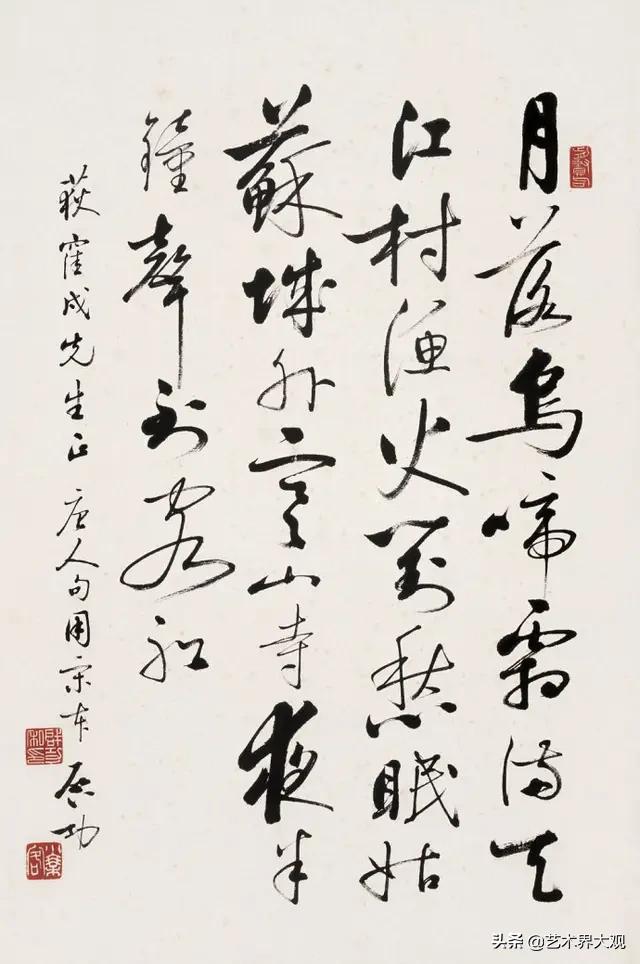 月落烏啼霜滿天
江村漁火對愁眠姑
蘇城外寒山寺夜半
鐘聲到客船
荻窪成先生正 唐人句用宋本 啟功
啟功私印
头条 @艺术界大观